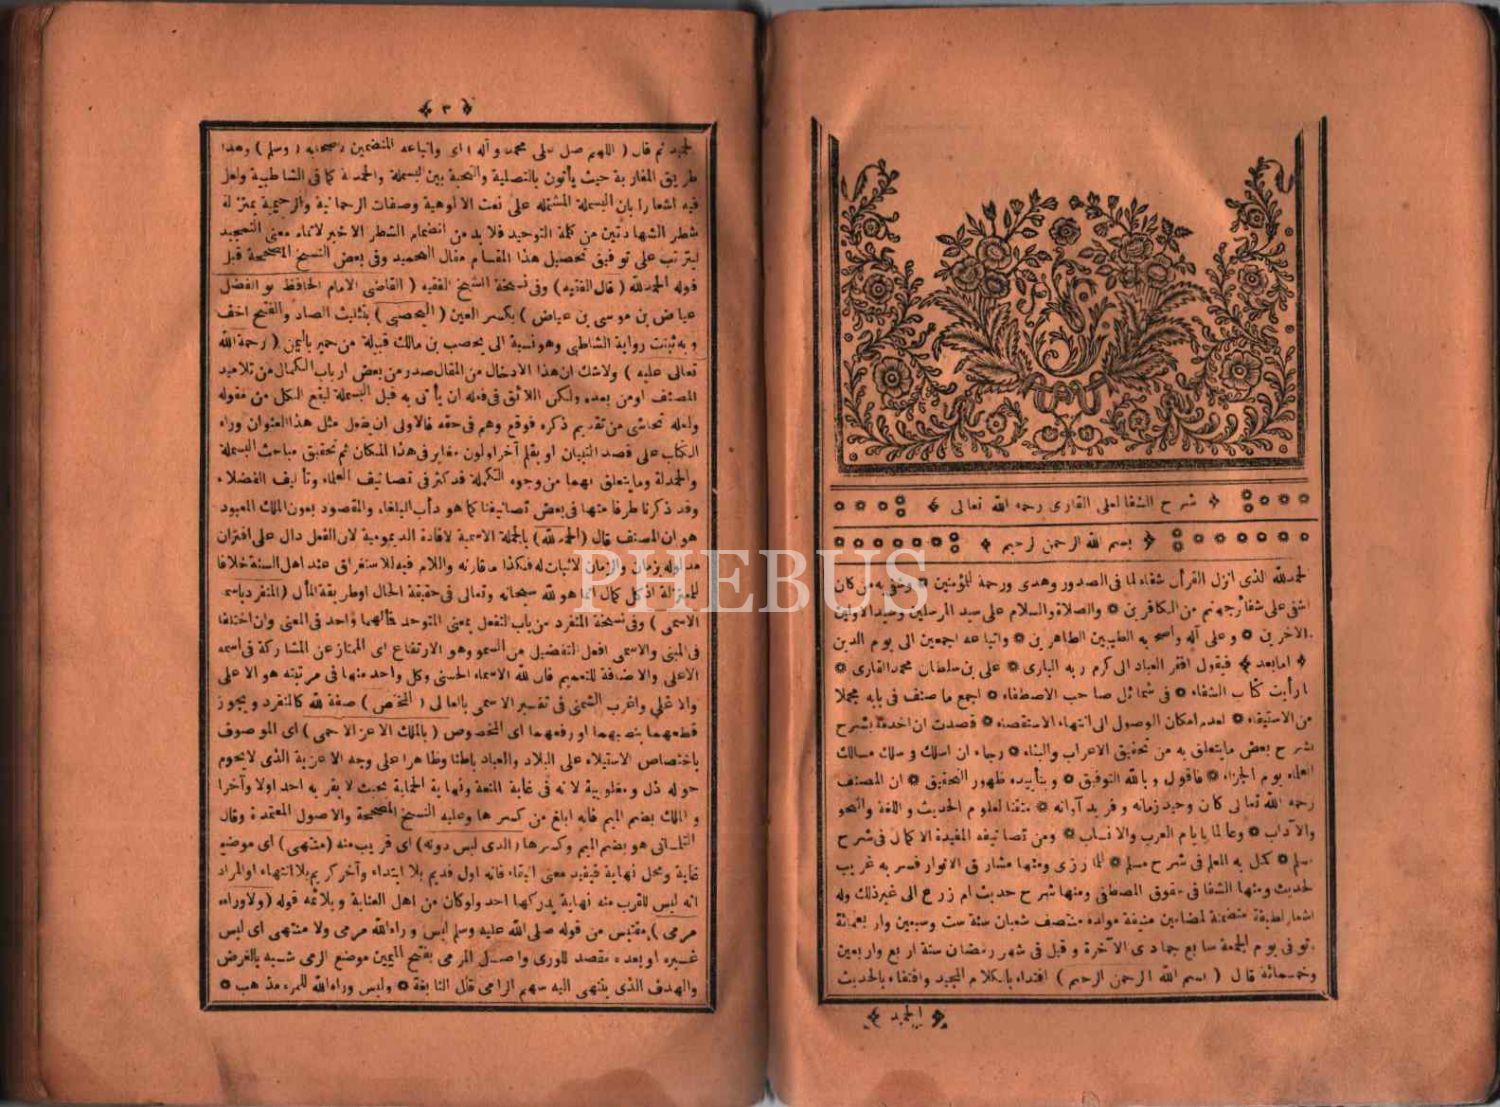 شرح الشفا لعلى القارى رحمه الله تعالى
بسم الله الرحمن الرحيم
الحمدلله الذى انزل القرأن شفاء لما فى الصدور وهدى ورحمة للمؤمنين وشفى به من كان
اشفى على شفا جهنم من الكافرين والصلاة والسلام على سيد المرسلين وسيد الاولين
والآخرين وعلى آله وأصحابه الطيبين الطاهرين واتباعه اجمعين الى يوم الدين
امابعد فيقول افقر العباد الى كرم ربه البارى على بن سلطان محمد القارى
لما رأيت كتاب الشفاء فى شمائل صاحب الاصطفاء اجمع ما صنف فى بابه مجملا
من الاستيفاء لعدم امكان الوصول الى انتهاء الاستقصاء قصدت ان اخدمه بشرح
يشرح بعض مايتعلق به من تحقيق الاعراب والبناء رجاء ان اسلك وسلك مسالك
العلماء يوم الجزاء فاقول وبالله التوفيق وبتأييده ظهور التحقيق ان المصنف
رحمه الله تعالى كان وحيد زمانه وفريد آوانه متقنا لعلوم الحديث واللغة والنحو
والآداب وعالما بايام العرب والانساب ومن تصانيفه المفيدة الاكمال فى شرح
مسلم كمل به المعلم فى شرح مسلم للمازرى ومنها مشارق الانوار فسر به غريب
الحديث ومنها الشفا فى حقوق المصطفى ومنها شرح حديث ام زرع الى غير ذلك وله
اشعار لطيفة متضمنة لمضامين منيفة مولده منتصف شعبان سنة ست وسبعين واربعمائة
توفى يوم الجمعة سابع جمادى الآخرة وقيل فى شهر رمضان سنة اربع واربعين
وخمسمائة قال ( بسم الله الرحمن الرحيم ) اقتداء بالكلام المجيد واقتفاء بالحديث
الحميد
٣
الحميد ثم قال ( اللهم صل على محمد وآله ) اى واتباعه المتضمنين لاصحابه ( وسلم ) وهذا
طريق المغاربة حيث يأتون بالتصلية والتحية بين البسملة والحمدلة كما فى الشاطبية ولعل
فيه اشعارا بان البسملة المشتملة على نعت الالوهية وصفات الرحمانية والرحيمية بمنزلة
شطر الشهادتين من كلمة التوحيد فلا بد من انضمام الشطر الاخير لاتمام معنى التمجيد
ليترتب على توفيق تحصيل هذا المقام مقال التحميد وفى بعض النسخ الصحيحة قبل
قوله الحمدلله ( قال الفقيه ) وفى نسخة الشيخ الفقيه ( القاضى الامام الحافظ ابو الفضل
عياض بن موسى بن عياض ) بكسر العين ( اليحصبى ) بتثليث الصاد والفتح اخف
وبه ثبتت رواية الشاطبى وهو نسبة الى يحصب بن مالك قبيلة من حمير باليمن ( رحمة الله
تعالى عليه ) ولاشك ان هذا الادخال من المقال صدر من بعض ارباب الكمال من تلاميذ
المصنف اومن بعده ولكن اللائق فى فعله ان يأتى به قبل البسملة ليقع الكل من مقوله
ولعله تحاشى من تقديم ذكره فوقع وهم فى حقه فالاولى ان يفعل مثل هذا العنوان وراء
الكتاب على قصد التبيان او بقلم آخر اولون مغاير فى هذا المكان ثم تحقيق مباحث البسملة
والحمدلة ومايتعلق بهما من وجوه التكملة قد كثر فى تصانيف العلماء وتأليف الفضلاء
وقد ذكرنا طرفا منها فى بعض تصانيفنا كما هو دأب البلغاء والمقصود بعون الملك المعبود
هو ان المصنف قال (الحمدلله) بالجملة الاسمية لافادة الديمومية لان الفعل دال على اقتران
مدلوله زمان والزمان لاثبات له فكذا ما قارنه واللام فيه للاستغراق عند اهل السنة خلافا
للمعتزلة اذ كل كمال انما هو لله سبحانه وتعالى فى حقيقة الحال اوطريقة المآل (المنفرد باسمه
الاسمى ) وفى نسخة المتفرد من باب التفعل بمعنى المتوحد فمآلهما واحد فى المعنى وان اختلفا
فى المبنى والاسمى افعل التفضيل من السمو وهو الارتفاع اى الممتاز عن المشاركة فى اسمه
الاعلى والاضافة للتعميم فان لله الاسماء الحسنى وكل واحد منها فى مرتبته هو الاعلى
والاغلى واغرب الشمنى فى تفسير الاسمى بالعالى ( المختص ) صفة لله كالمنفرد ويجوز
قطعهما بنصبهما اورفعهما اى المخصوص ( بالملك الاعز الاحمى ) اى الموصوف
باختصاص الاستيلاء على البلاد والعباد باطنا وظاهرا على وجه الاعزية الذى لايحوم
حوله ذل ومغلوبية لانه فى غاية المنعة ونهاية الحماية بحيث لا يقربه احد اولا وآخرا
والملك بضم الميم فانه ابلغ من كسرها وعليه النسخ الصحيحة والاصول المعتمدة وقال
التلمسانى هو بضم الميم وكسرها (الذى ليس دونه) اى قريب منه (منتهى) اى موضع
غاية ومحل نهاية فيفيد معنى البقاء فانه اول قديم بلا ابتداء وآخر كريم بلا انتهاء اوالمراد
انه ليس للقرب منه نهاية يدركها احد ولوكان من اهل العناية ويلائمه قوله (ولاوراءه
مرمى) مقتبس من قوله صلى الله عليه وسلم ليس وراء الله مرمى ولا منتهى اى ليس
غيره او بعده مقصد للورى واصل المرمى بفتح الميمين موضع الرمى شبه بالغرض
والهدف الذى ينتهى اليه سهم الرامى قال النابغة وليس وراء الله للمرء مذهب
PHEBUS